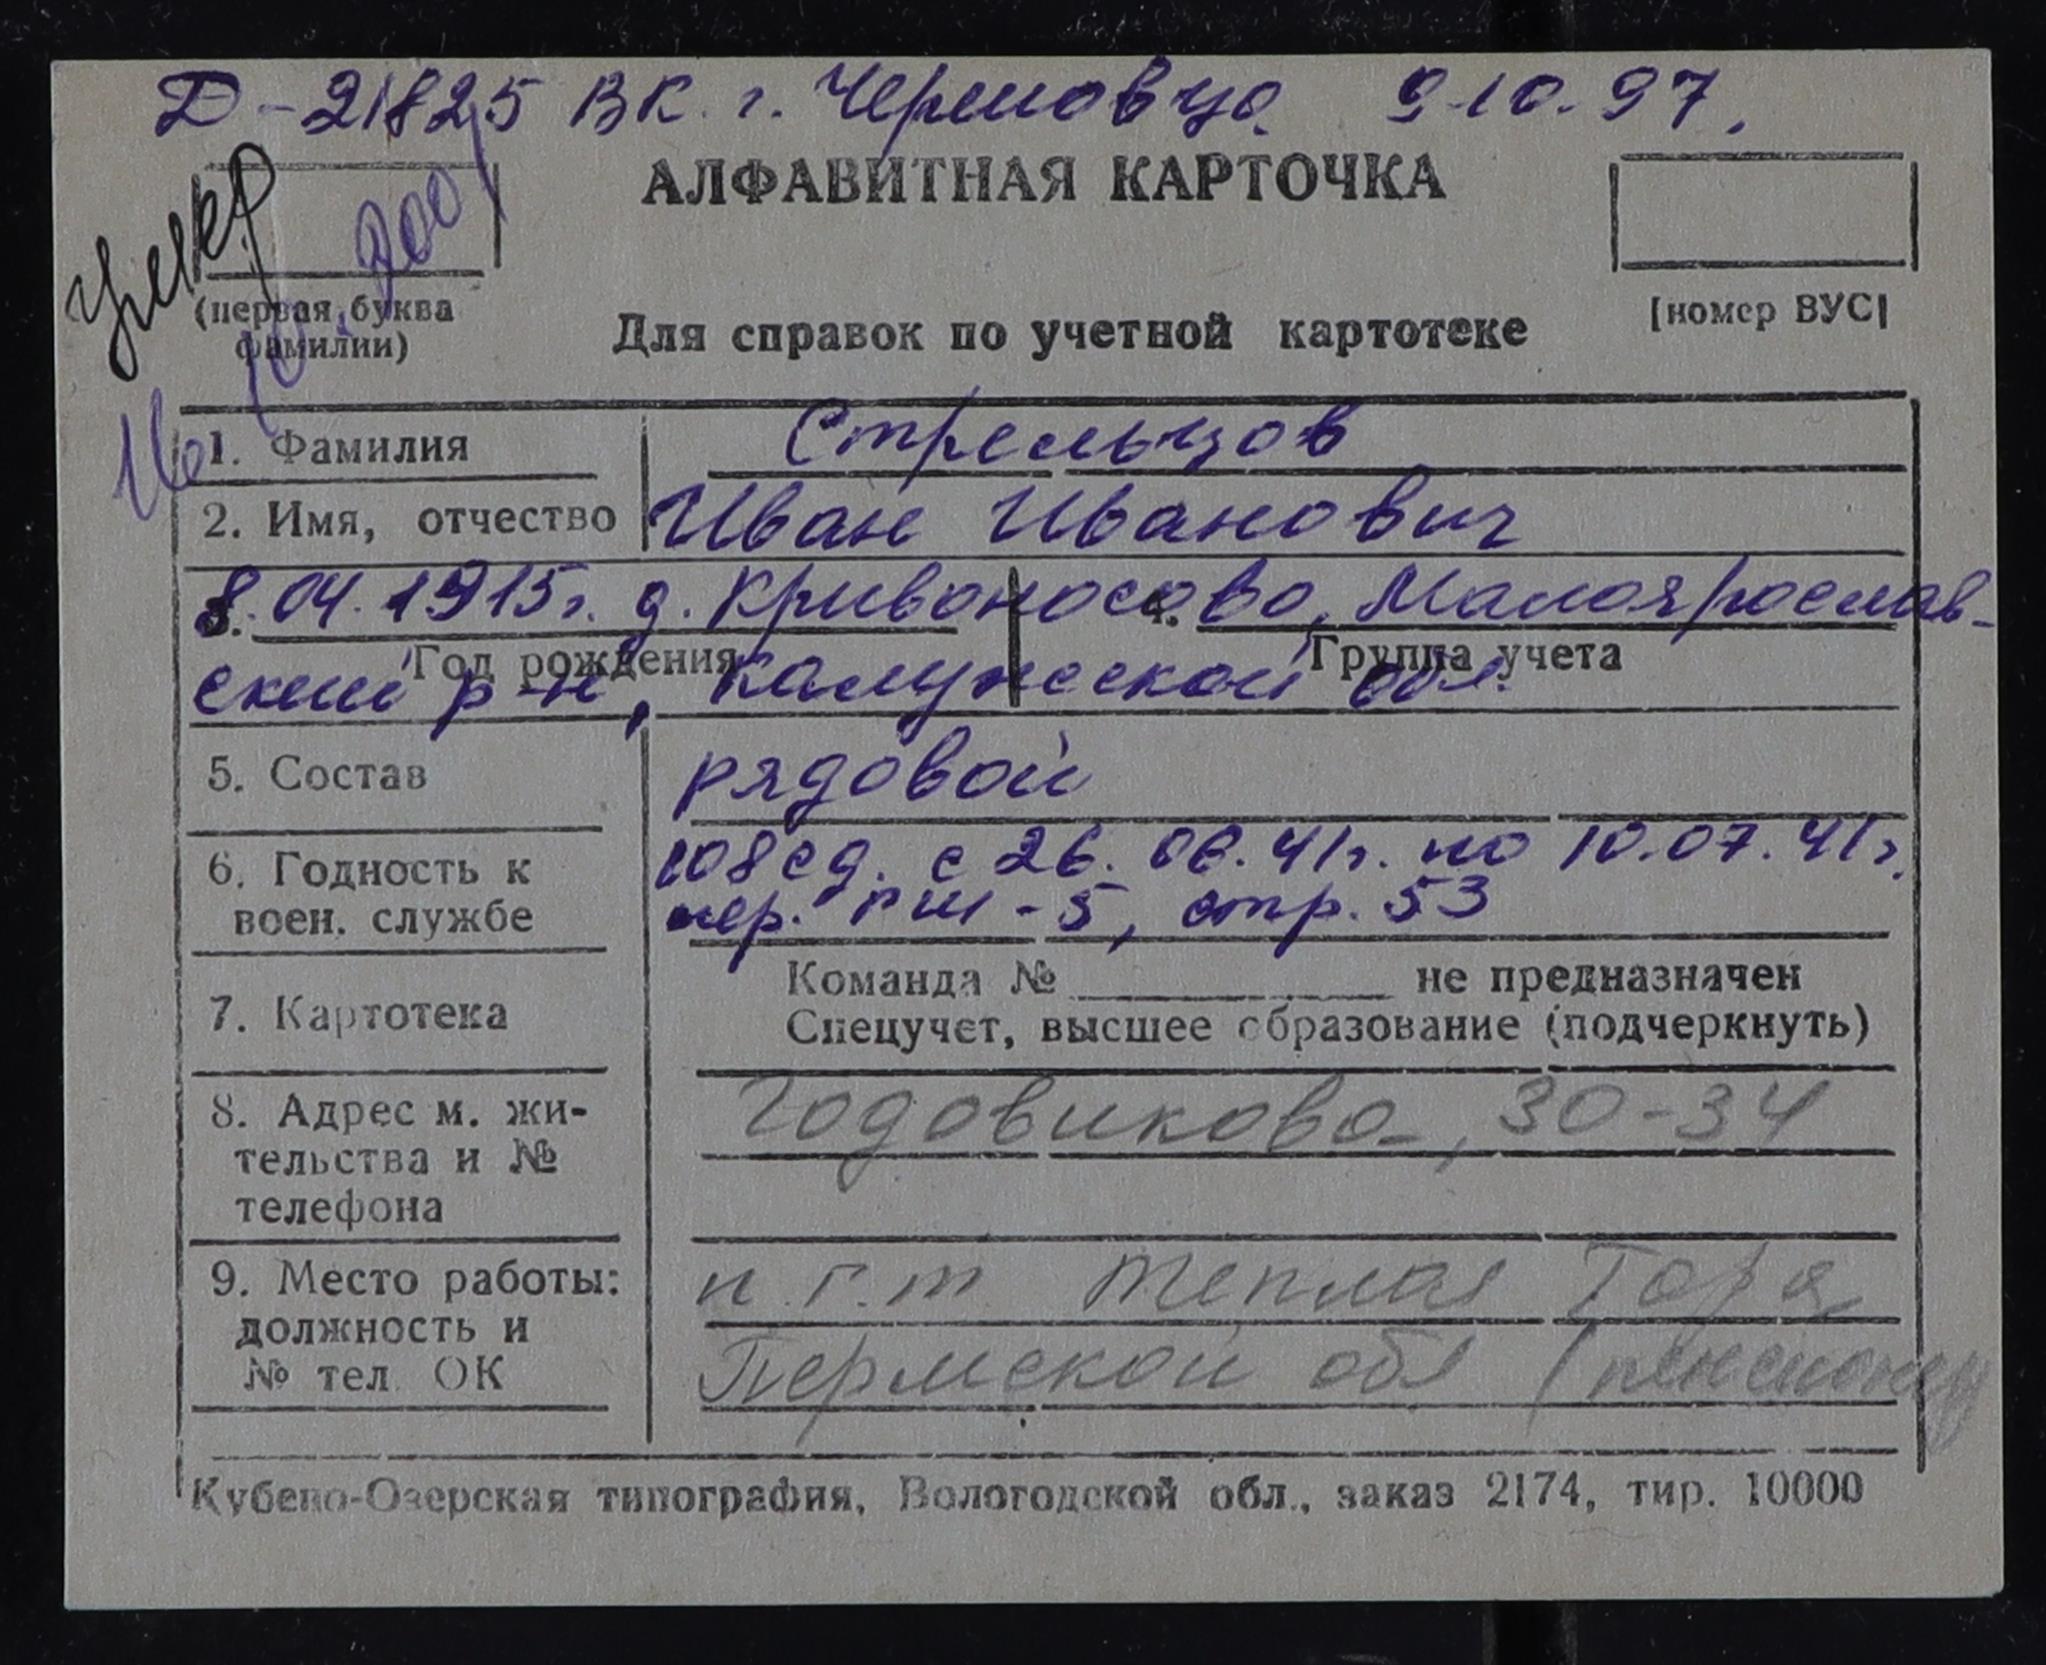 Д-21825 ВК. г. Череповца 9-10.97.
умер
16 10. 2001
АЛФАВИТНАЯ КАРТОЧКА
(первая буква
фамилии)
[номер ВУС]
Для справок по учетной картотеке
1. Фамилия Стрельцов
2. Имя, отчество Иван Иванович
8.04.1915г. д. Кривоносово, Малоярослав-
Год рождения Группа учета
ский р-н, Калужской обл.
5. Состав рядовой
6. Годность к
воен. службе
108 сд. с 26.06.41г. по 10.07.41г.
пер. ГШ-5, стр. 53
7. Картотека
Команда № не предназначен
Спецучет, высшее образование (подчеркнуть)
8. Адрес м. жи-
тельства и №
телефона
Годовикова, 30-34
9. Место работы:
должность и
№ тел. ОК
п.г.т Теплая Гора
Пермской обл (пенсионер
Кубено-Озерская типография, Вологодской обл., заказ 2174, тир. 10000